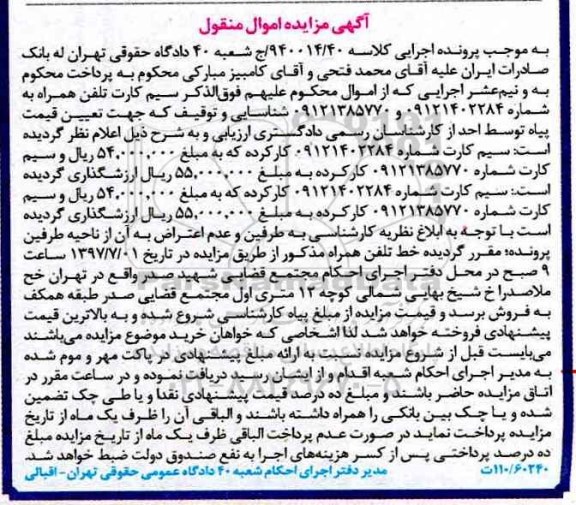 آگهی مزایده اموال منقول
به موجب پرونده اجرایی کلاسه ۹۴۰۰۱۴/۴۰/ج شعبه ۴۰ دادگاه حقوقی تهران له بانک
صادرات ایران علیه آقای محمد فتحی و آقای کامبیز مبارکی محکوم به پرداخت محکوم
به و نیم‌عشر اجرایی که از اموال محکوم علیهم فوق‌الذکر سیم کارت تلفن همراه به
شماره ۰۹۱۲۱۴۰۲۲۸۴ و ۰۹۱۲۱۳۸۵۷۷۰ شناسایی و توقیف که جهت تعیین قیمت
پیاه توسط احد از کارشناسان رسمی دادگستری ارزیابی و به شرح ذیل اعلام نظر گردیده
است: سیم کارت شماره ۰۹۱۲۱۴۰۲۲۸۴ کارکرده که به مبلغ ۵۴,۰۰۰,۰۰۰ ریال و سیم
کارت شماره ۰۹۱۲۱۳۸۵۷۷۰ کارکرده به مبلغ ۵۵,۰۰۰,۰۰۰ ریال ارزشگذاری گردیده
است: سیم کارت شماره ۰۹۱۲۱۴۰۲۲۸۴ کارکرده که به مبلغ ۵۴,۰۰۰,۰۰۰ ریال و سیم
کارت شماره ۰۹۱۲۱۳۸۵۷۷۰ کارکرده به مبلغ ۵۵,۰۰۰,۰۰۰ ریال ارزشگذاری گردیده
است با توجه به ابلاغ نظریه کارشناسی به طرفین و عدم اعتراض به آن از ناحیه طرفین
پرونده؛ مقرر گردیده خط تلفن همراه مذکور از طریق مزایده در تاریخ ۱۳۹۷/۷/۰۱ ساعت
۹ صبح در محل دفتر اجرای احکام مجتمع قضایی شهید صدر واقع در تهران خح
ملاصدرا خ شیخ بهایی شمالی کوچه ۱۲ متری اول مجتمع قضایی صدر طبقه همکف
به فروش برسد و قیمت مزایده از مبلغ پیاه کارشناسی شروع شده و به بالاترین قیمت
پیشنهادی فروخته خواهد شد لذا اشخاصی که خواهان خرید موضوع مزایده می‌باشند
می‌بایست قبل از شروع مزایده نسبت به ارائه مبلغ پیشنهادی در پاکت مهر و موم شده
به مدیر اجرای احکام شعبه اقدام و از ایشان رسید دریافت نموده و در ساعت مقرر در
اتاق مزایده حاضر باشند و مبلغ ده درصد قیمت پیشنهادی نقدا و یا طی چک تضمین
شده و یا چک بین بانکی را همراه داشته باشند و الباقی آن را ظرف یک ماه از تاریخ
مزایده پرداخت نماید در صورت عدم پرداخت الباقی ظرف یک ماه از تاریخ مزایده مبلغ
ده درصد پرداختی پس از کسر هزینه‌های اجرا به نفع صندوق دولت ضبط خواهد شد.
۱۱۰/۶۰۲۴۰ت مدیر دفتر اجرای احکام شعبه ۴۰ دادگاه عمومی حقوقی تهران - اقبالی